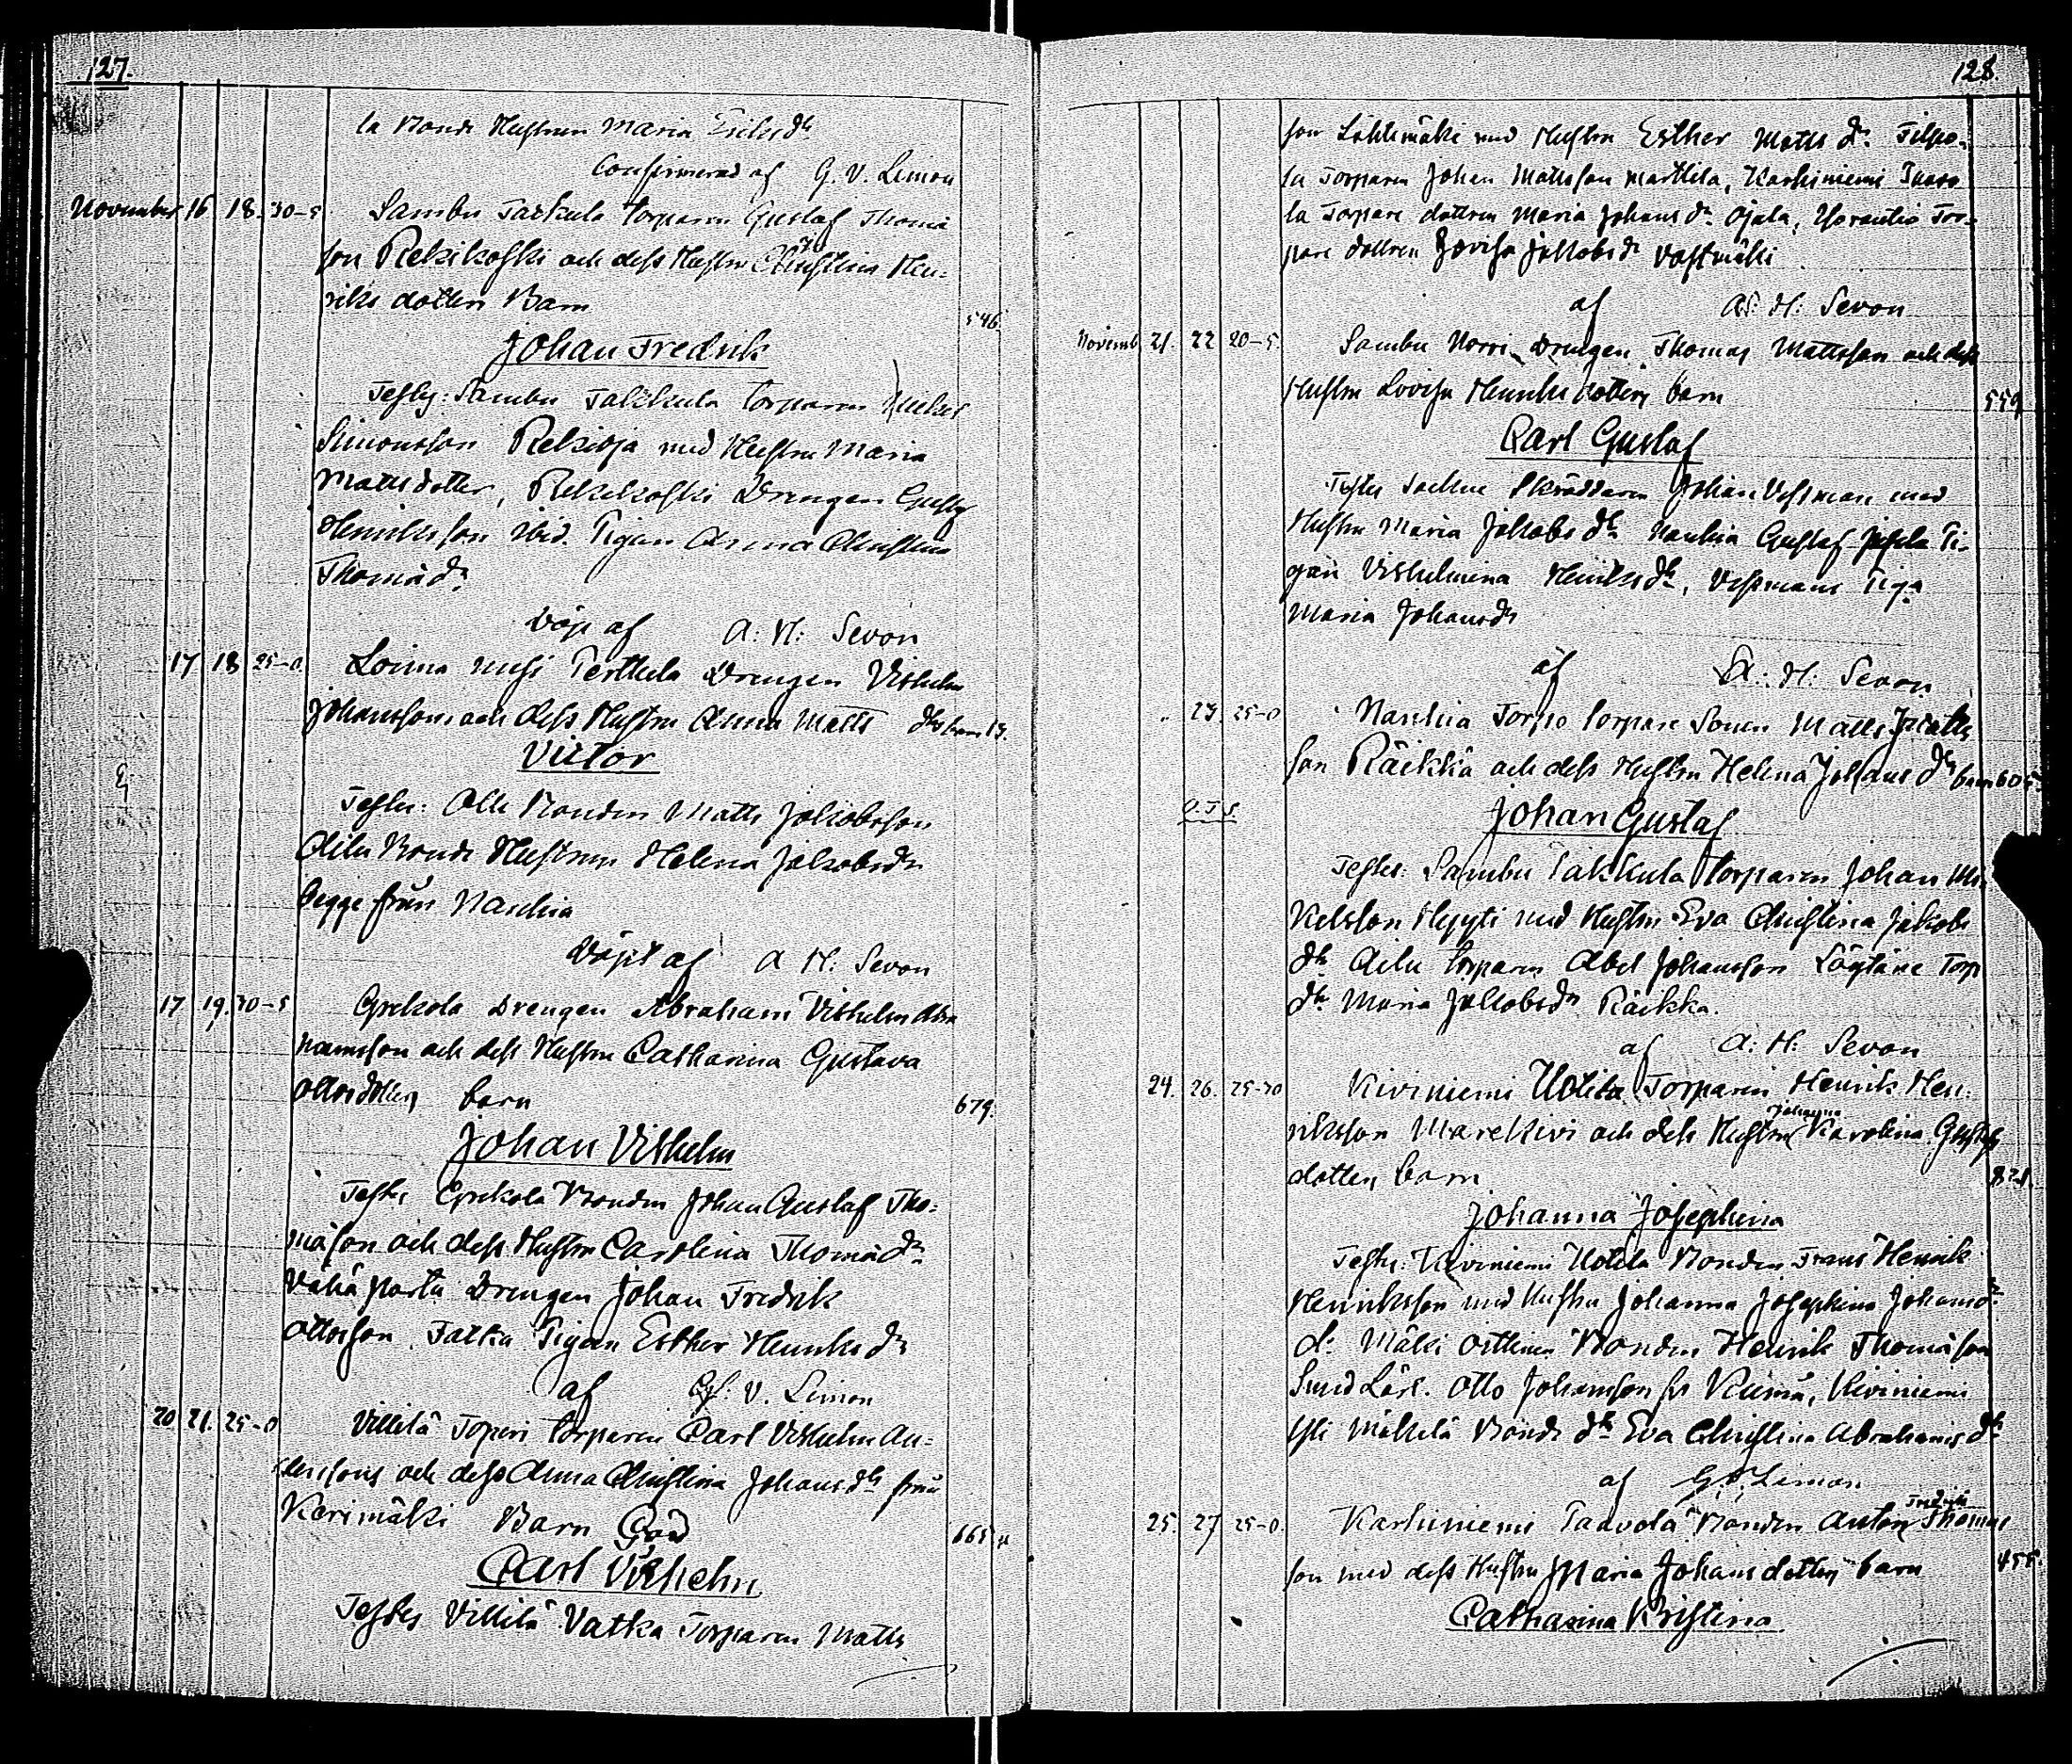 127.
la Bonde Hustrun Maria Eriksdr
Confirmerad af G. V. Limon
November 16 18. 30-5 Sambu Takkula torparen Gustaf Thomæ
son Rekikoski och dess Hustru Christina Hen-
riks dotters Barn 546.
Johan Fredrik
Testes: Sambu Takkula torparen
Simonsson Rekioja med Hustru Maria
Mattsdotter, Rekikoski Drengen Gustaf
Henriksson ibid. Pigan Anna Christina
Thomædr
Döpt af A: H: Sevon
17 18 25-0 Loima Perttula Drengen Vilhelm
Johanssons och dess Hustru Anna Matts drs barn 13.
Victor
Testes: Bonden Matts Jakobsson
Äilu Bonde Hustrun Helena Jakobsdr
begge från Nauhia
Döpt af A H: Sevon
17 19. 30-5 Grekola Drengen Abraham Vilhelm Abra
hamsson och dess Hustru Catharina Gustava
Ottosdotters barn 679.
Johan Vilhelm
Testes Grekola Bonden Johan Gustaf Tho-
mäson och dess Hustru Carolina Thomædr
Vähä partu Drengen Johan Fredrik
Ottosson. Tatka Pigan Esther Henriks dr
af G: V. Limon
20 21. 25-0 Villilä Toperi torparen Carl Vilhelm An-
derssons och dess Anna Christina Johansdr från
Kerimäki Barn 665
Carl Vilhelm
Testes Villilä Vatka Torparen Matts
128.
son Lähtemäki med Hustru Esther Matts dr. Filpo-
la Torparen Johan Mattsson Marttila, Karhiniemi Paavo
la Torpare dottren Maria Johans dr Ojala, Tor-
pare dottren Lovisa Jakobsdr Vastmäki
af A: H: Sevon
Novemb 21. 22 20-5 Sambu Norri Drengen Thomas Mattsson och dess
Hustru Lovisa Henriks dotters barn 559
Carl Gustaf
Testes Skräddaren Johan Vestman med
Hustru Maria Jakobs dr Nauhia Gustaf Pi-
gan Vilhelmina Henriksdr, Vestmans Piga
Maria Johansdr
af A: H: Sevon
23. 25-0 Nauhia Torpo torpare Sonen Matts Matts
son Räikkä och dess Hustru Helena Johans drs barn 605.
Johan Gustaf
Testes: Sambu Takkula torparen Johan Mi-
kelsson Hepyti med Hustru Eva Christina Jakobs
dr Äilu torparen Abel Johansson Löytäne Torp
dr Maria Jakobsdr Räikka.
af A: H: Sevon
24. 26. 25-30 Kiviniemi Uotila Torparen Henrik Hen-
riksson Marekivi och dess Hustru Johanna Karolina Gustafs
dotters barn 821.
Johanna Josephina
Testes: Kiviniemi Uotila Bonden Frans Henrik
Henriksson med Hustru Johanna Josephina Johans
dr. Mäki Orttinen Bonden Henrik Thomäson
Smed Lärl. Otto Johansson fr Kiimä, Kiviniemi
Yli Mäkelä Bonde dr Eva Christina Abrahams dr
af G. V. Limon
25. 27 25-0. Karhiniemi Paavola Bonden Anton Fredrik Thomas
son med dess Hustru Maria Johans dotters barn 455.
Catharina Kristina